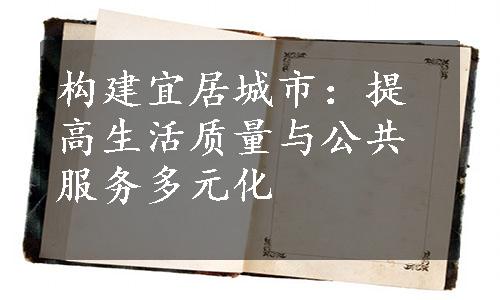 构建宜居城市：提
高生活质量与公共
服务多元化